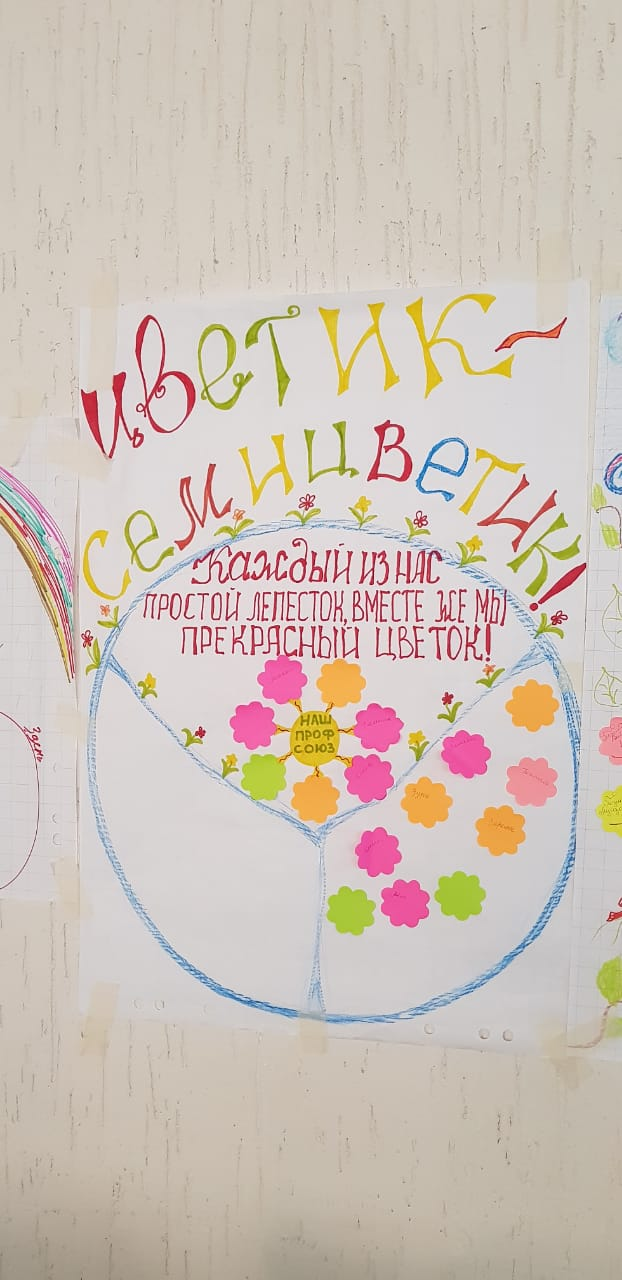 ЦВЕТИК-
СЕМИЦВЕТИК!
Каждый из нас
ПРОСТОЙ ЛЕПЕСТОК, ВМЕСТЕ ЖЕ МЫ
ПРЕКРАСНЫЙ ЦВЕТОК!
НАШ
ПРОФ
СОЮЗ